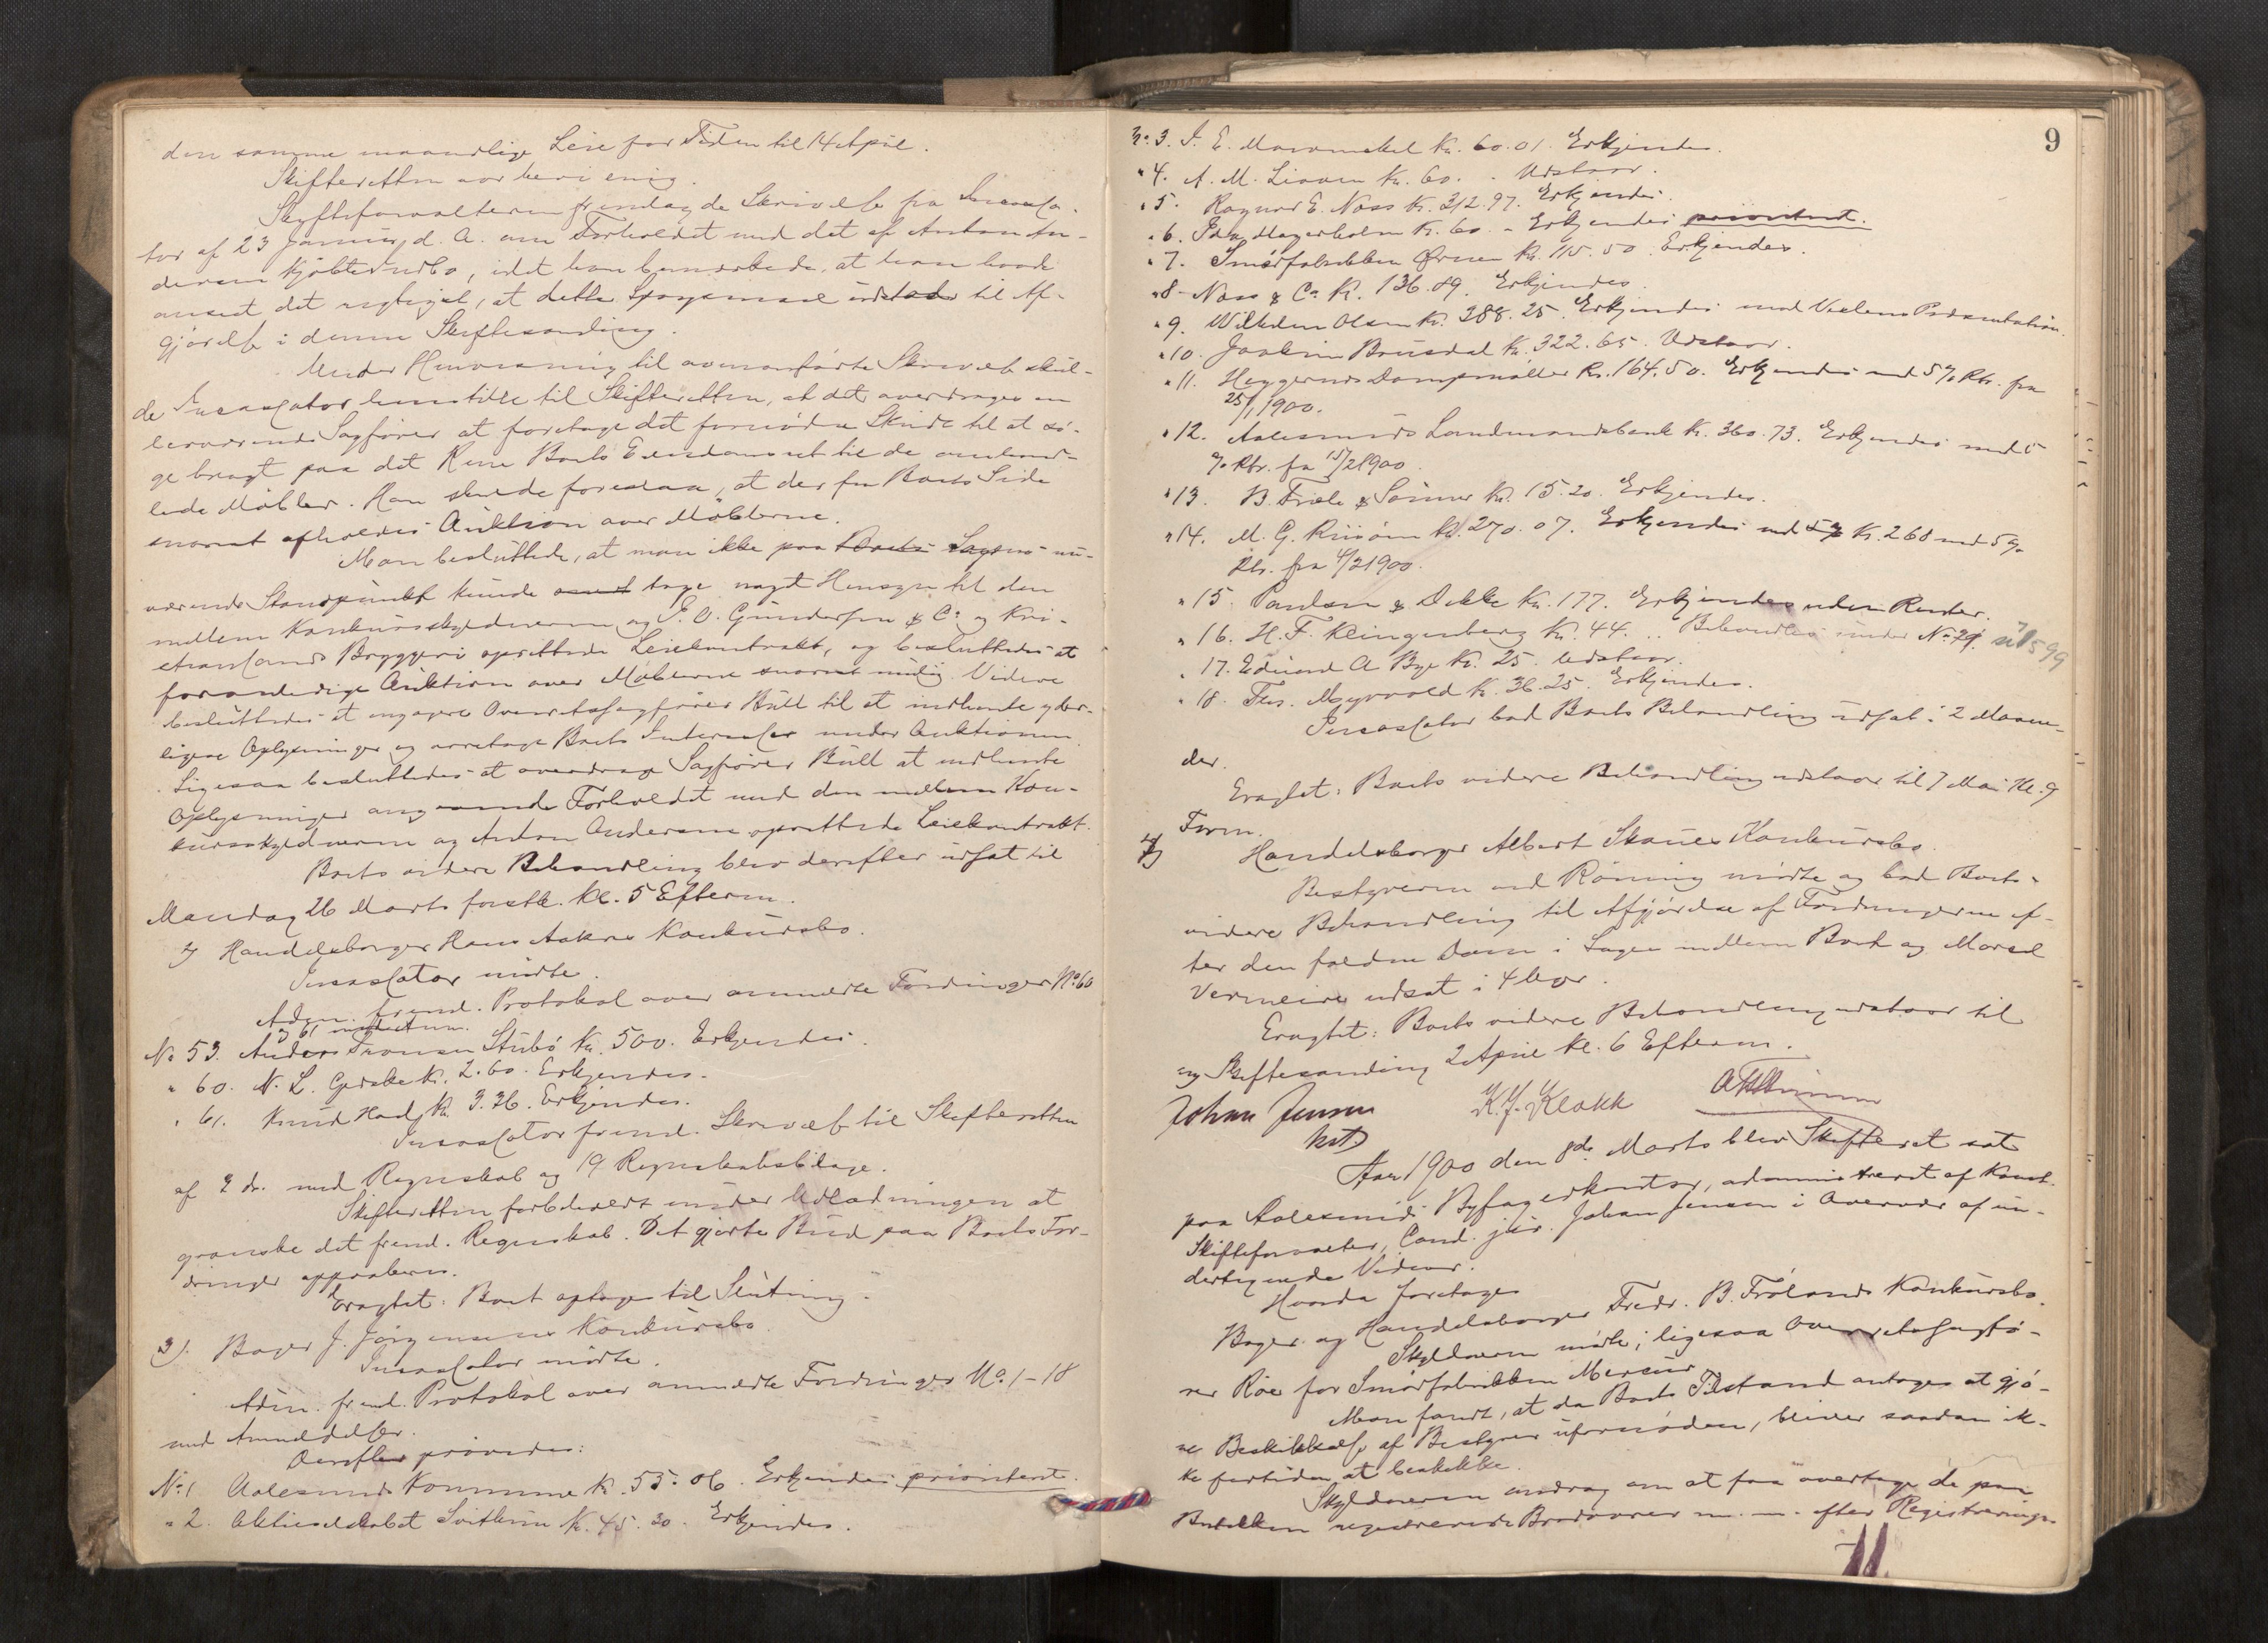 den samme maanedlige Leie for Tiden til 14 April.
Skifteretten var heri enig.
Skifteforvalteren fremlagde Skrivelse fra Incassa-
tor af 23 Januar d. A. om Forholdet med det af Anton An-
dersen kjøbte Indbo, idet han bemærkede, at han havde
anseet det rigtigst, at dette Spørgsmaal udstod til Af-
gjørelse i denne Skiftesamling.
Under Henvisning til ovenanførte Skrivelse skul-
de Incassator henstille til Skifteretten, at det overdrages en
herværende Sagfører at foretage det fornødne Skridt til at sø-
ge bragt paa det Rene Boets Eiendomsret til de omhand-
lede Møbler. Han skulde foreslaa, at der fra Boets Side
snarest afholdes Auktion over Møblerne.
Man besluttede, at man ikke paa Boets Sagens nu-
værende Standpunkt kunde tage noget Hensyn til den
mellem Konkursskyldneren og E. O. Gundersen & Co og Kri-
stiansands Bryggeri oprettede Leiekontrakt, og besluttedes at
foranledige Auktion over Møblerne snarest mulig. Videre
besluttedes at engagere Overretssagfører Bull til at indhente yder-
ligere Oplysninger og varetage Boets Interesser under Auktionen.
Ligesaa besluttedes at overdrage Sagfører Bull at indhente
Oplysninger angaaende Forholdet med den mellem Kon-
kursskyldneren og Anton Andersen oprettede Leiekontrakt.
Boets videre Behandling blev derefter udsat til
Mandag 26 Marts førstk. Kl. 5 Efterm.
2) Handelsborger Hans Aakres Konkursbo.
Incassator mødte.
Adm. freml. Protokol over anmeldte Fordringer No 60
og 61
No 53. Anders Fransen Stubø Kr. 500. Erkjendes.
" 60. N. L. Gjerske Kr. 2.60. Erkjendes.
" 61. Knud Hadj Kr. 3.36. Erkjendes.
Incassator freml. Skrivelse til Skifteretten
af 2 ds. med Regnskab og 19 Regnskabsbilage.
Skifteretten forbeholdt under Udlodningen at
granske det freml. Regnskab. Det gjorte Bud paa Boets For-
dringer approberes.
Eragtet: Boet optages til Slutning.
3). Bager J. Jørgensens Konkursbo.
Incassator mødte.
Adm. freml. Protokol over anmeldte Fordringer No. 1-18
med Anmeldelser.
Derefter prøvedes:
No. 1 Aalesunds Kommune Kr. 55.06. Erkjendes prioriteret.
" 2. Aktieselskabet Svithun Kr. 45.30. Erkjendes.
9
No. 3. J. E. Kr. 60.01. Erkjendes.
" 4. A. M. Liaaen Kr. 60. - Udstaar.
" 5. Ragnv. E. Næss Kr. 312.97. Erkjendes.
" 6. Ida Magerholm Kr. 60. - Erkjendes prioriteret.
" 7. Smørfabrikken Ørnen Kr. 115.50. Erkjendes.
" 8. Næss & Co. Kr. 136.89. Erkjendes.
" 9. Wilhelm Olsen Kr. 288.25. Erkjendes mod Vexlens Præsentation.
" 10. Joakim Brusdal Kr. 322.65. Udstaar.
" 11. Heggernes Dampmøller Kr. 164.50. Erkjendes med 5 % Rtr. fra
25/1 1900.
" 12. Aalesunds Landmandsbank Kr. 360.73. Erkjendes med 5
% Rtr. fra 15/2 1900.
" 13. B. Friele & Sønner Kr. 15.20. Erkjendes.
" 14. M. G. Riisøen Kr. 270.07. Erkjendes med Kr. 260 med 5 %
Rtr. fra 4/2 1900.
" 15. Paulsen & Dekke Kr. 177. Erkjendes uden Renter.
" 16. H. F. Klingenberg Kr. 44. .. Behandles under No 29.
" 17. Edvard A Bye Kr. 25. Udstaar.
" 18. Myrvold Kr. 36.25. Erkjendes.
Incassator bad Boets Behandling udsat i 2 Maane-
der.
Eragtet: Boets videre Behandling udstaar til 7 Mai Kl. 9
Form.
4) Handelsborger Albert Skaues Konkursbo.
Bestyreren ved Røning mødte og bad Boets
videre Behandling til Afgjørelse af Fordringerne ef-
ter den faldne Dom i Sagen mellem Boet og Marcel
Vermeire udsat i 4 Uger.
Eragtet: Boets videre Behandling udstaar til
ny Skiftesamling 2 April Kl. 6 Efterm.
Johan Jensen
kst.
K. J. Klokk
Aar 1900 den 8de Marts blev Skifteret sat
paa Aalesunds Byfogedkontor, administreret af Konst.
Skifteforvalter, Cand. jur. Johan Jensen i Overvær af un-
dertegnede Vidner.
Hvorda foretoges
Bager og Handelsborger Fredr. B. Frølands Konkursbo.
Skyldneren mødte; ligesaa Overretssagfø-
rer Roe for Smørfabrikken Mercur.
Man fandt, at da Boets Tilstand antages at gjø-
re Beskikkelse af Bestyrer ufornøden, bliver saadan ik-
ke fortiden at beskikke.
Skyldneren androg om at faa overtage de paa
Butikken registrerede Brødvarer m. m. efter Registrerings-
11.